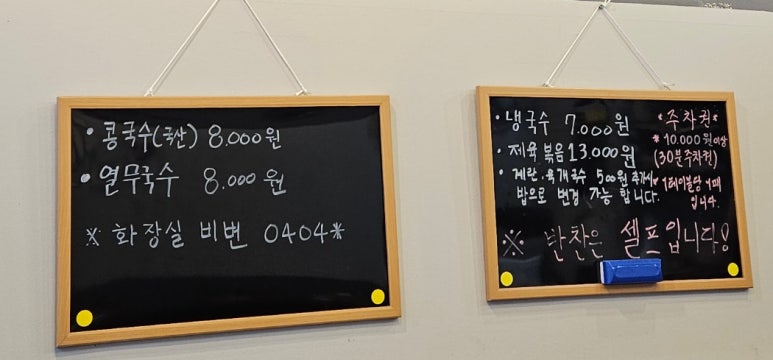 • 콩국수(국산) 8.000원
• 열무국수 8.000원
※ 화장실 비번 0404※
• 냉국수 7.000원
• 제육볶음 13.000원
• 계란. 육개국수 500원 추가시
밥으로 변경 가능합니다.
*주차권*
※ 10.000원이상
(30분주차권)
* 1테이블당 1매
입니다.
※ 반찬은 셀프입니다!